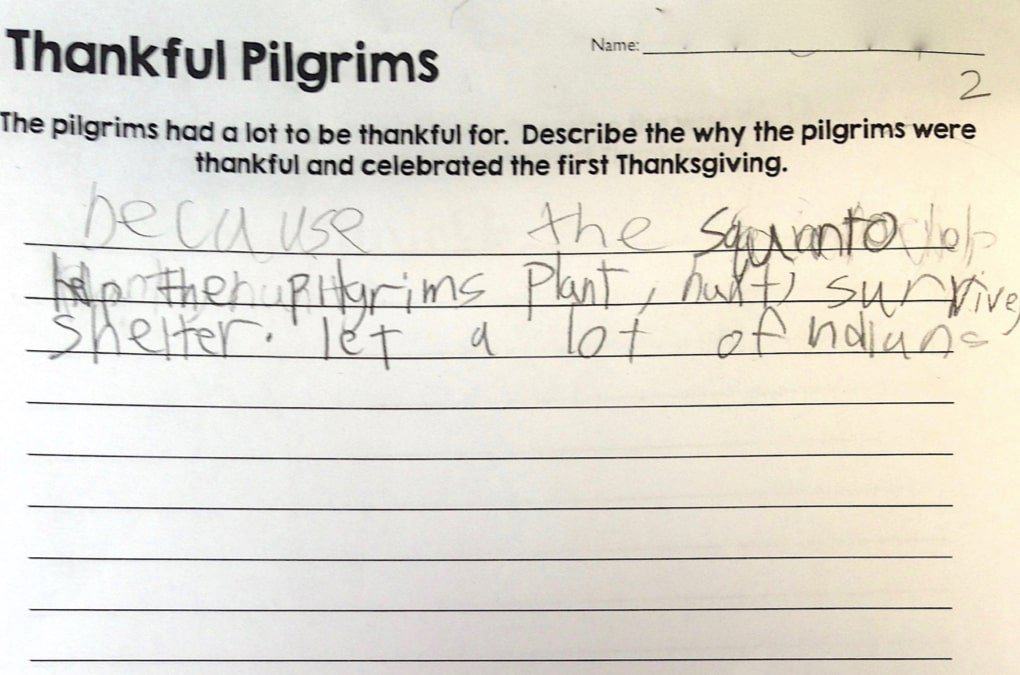 Thankful Pilgrims
Name:
2
The pilgrims had a lot to be thankful for. Describe the why the pilgrims were
thankful and celebrated the first Thanksgiving.
because the Squanto
help the pilgrims Plant, hunt, survive,
shelter. let a lot of ndians